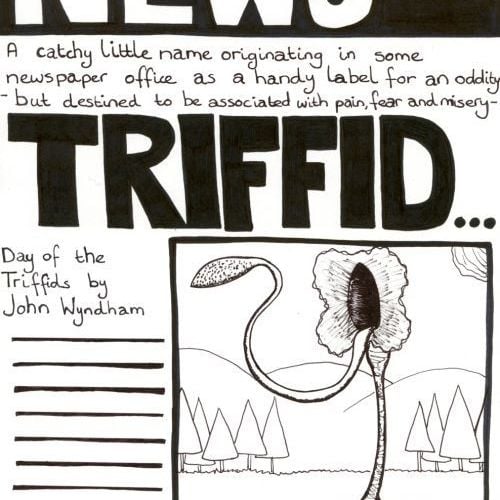 NEWS
A catchy little name originating in some
newspaper office as a handy label for an oddity
- but destined to be associated with pain, fear and misery-
TRIFFID...
Day of the
Triffids by
John Wyndham